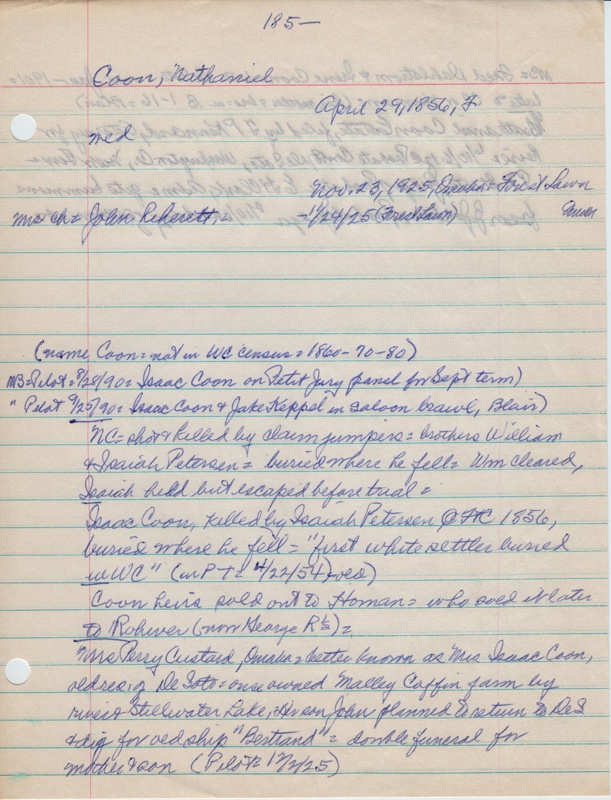 185—
Coon, Nathaniel
April 29, 1856, F
med
Nov. 23, 1925, Omaha = Forest Lawn
Mrs ch = John, Reherett, = -1/24/25 (Forest Lawn)
(name Coon = not in WC census = 1860-70-80)
MB = Pilot = 8/28/90 = Isaac Coon on Petit Jury panel for Sept term)
" Pilot 9/25/90 = Isaac Coon & Jake Keppel in saloon brawl, Blair)
NC = shot & killed by claim jumpers = brothers William
& Isaiah Petersen = buried where he fell = Wm cleared,
Isaiah held but escaped before trial =
Isaac Coon, killed by Isaiah Petersen @ FtC 1856,
buried where he fell = "first white settler buried
in WC" (in P T = 4/22/54)
Coon heirs sold out to Homan = who sold it later
to Rohwer (now George R's) =
Mrs Perry Custard, Omaha = better known as Mrs Isaac Coon,
old res. of De Soto = once owned Malley Coffin farm by
river & Stillwater Lake, = son John planned to return to DeS
& dig for old ship "Bertrand" = double funeral for
mother & son (Pilot = 12/2/25)